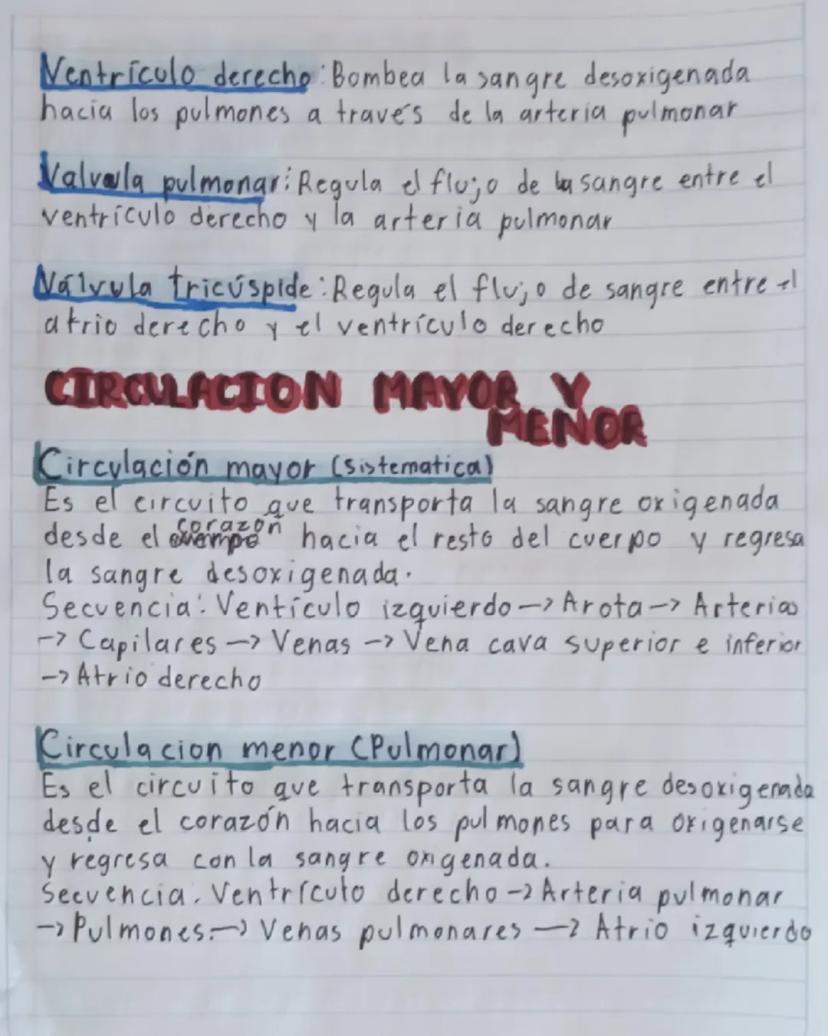 Ventrículo derecho: Bombea la sangre desoxigenada
hacia los pulmones a través de la arteria pulmonar
Valvula pulmonar: Regula el flujo de la sangre entre el
ventrículo derecho y la arteria pulmonar
Válvula tricúspide: Regula el flujo de sangre entre el
atrio derecho y el ventrículo derecho
CIRCULACION MAYOR Y
MENOR
Circulación mayor (sistematica)
Es el circuito que transporta la sangre oxigenada
desde el corazon hacia el resto del cuerpo y regresa
la sangre desoxigenada.
Secuencia: Ventículo izquierdo -> Arota -> Arterias
-> Capilares -> Venas -> Vena cava superior e inferior
-> Atrio derecho
Circulacion menor (Pulmonar)
Es el circuito que transporta la sangre desoxigenada
desde el corazón hacia los pulmones para oxigenarse
y regresa con la sangre oxigenada.
Secuencia. Ventrículo derecho -> Arteria pulmonar
-> Pulmones. -> Venas pulmonares -> Atrio izquierdo